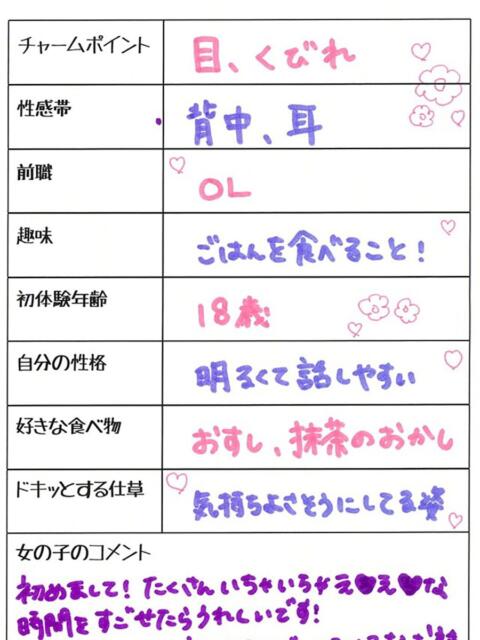 チャームポイント 目、くびれ
性感帯 背中、耳
前職 OL
趣味 ごはんを食べること！
初体験年齢 18歳
自分の性格 明るくて話しやすい
好きな食べ物 おすし、抹茶のおかし
ドキッとする仕草 気持ちよさそうにしてる姿
女の子のコメント
初めまして！たくさんいちゃいちゃえ♥え♥な
時間をすごせたらうれしいです！